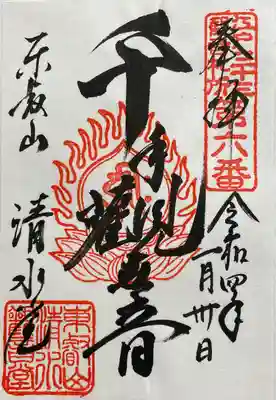 第六番
奉拝
令和四年
一月卅日
千手観世音
東叡山
清水堂
東叡山
清水
観音堂